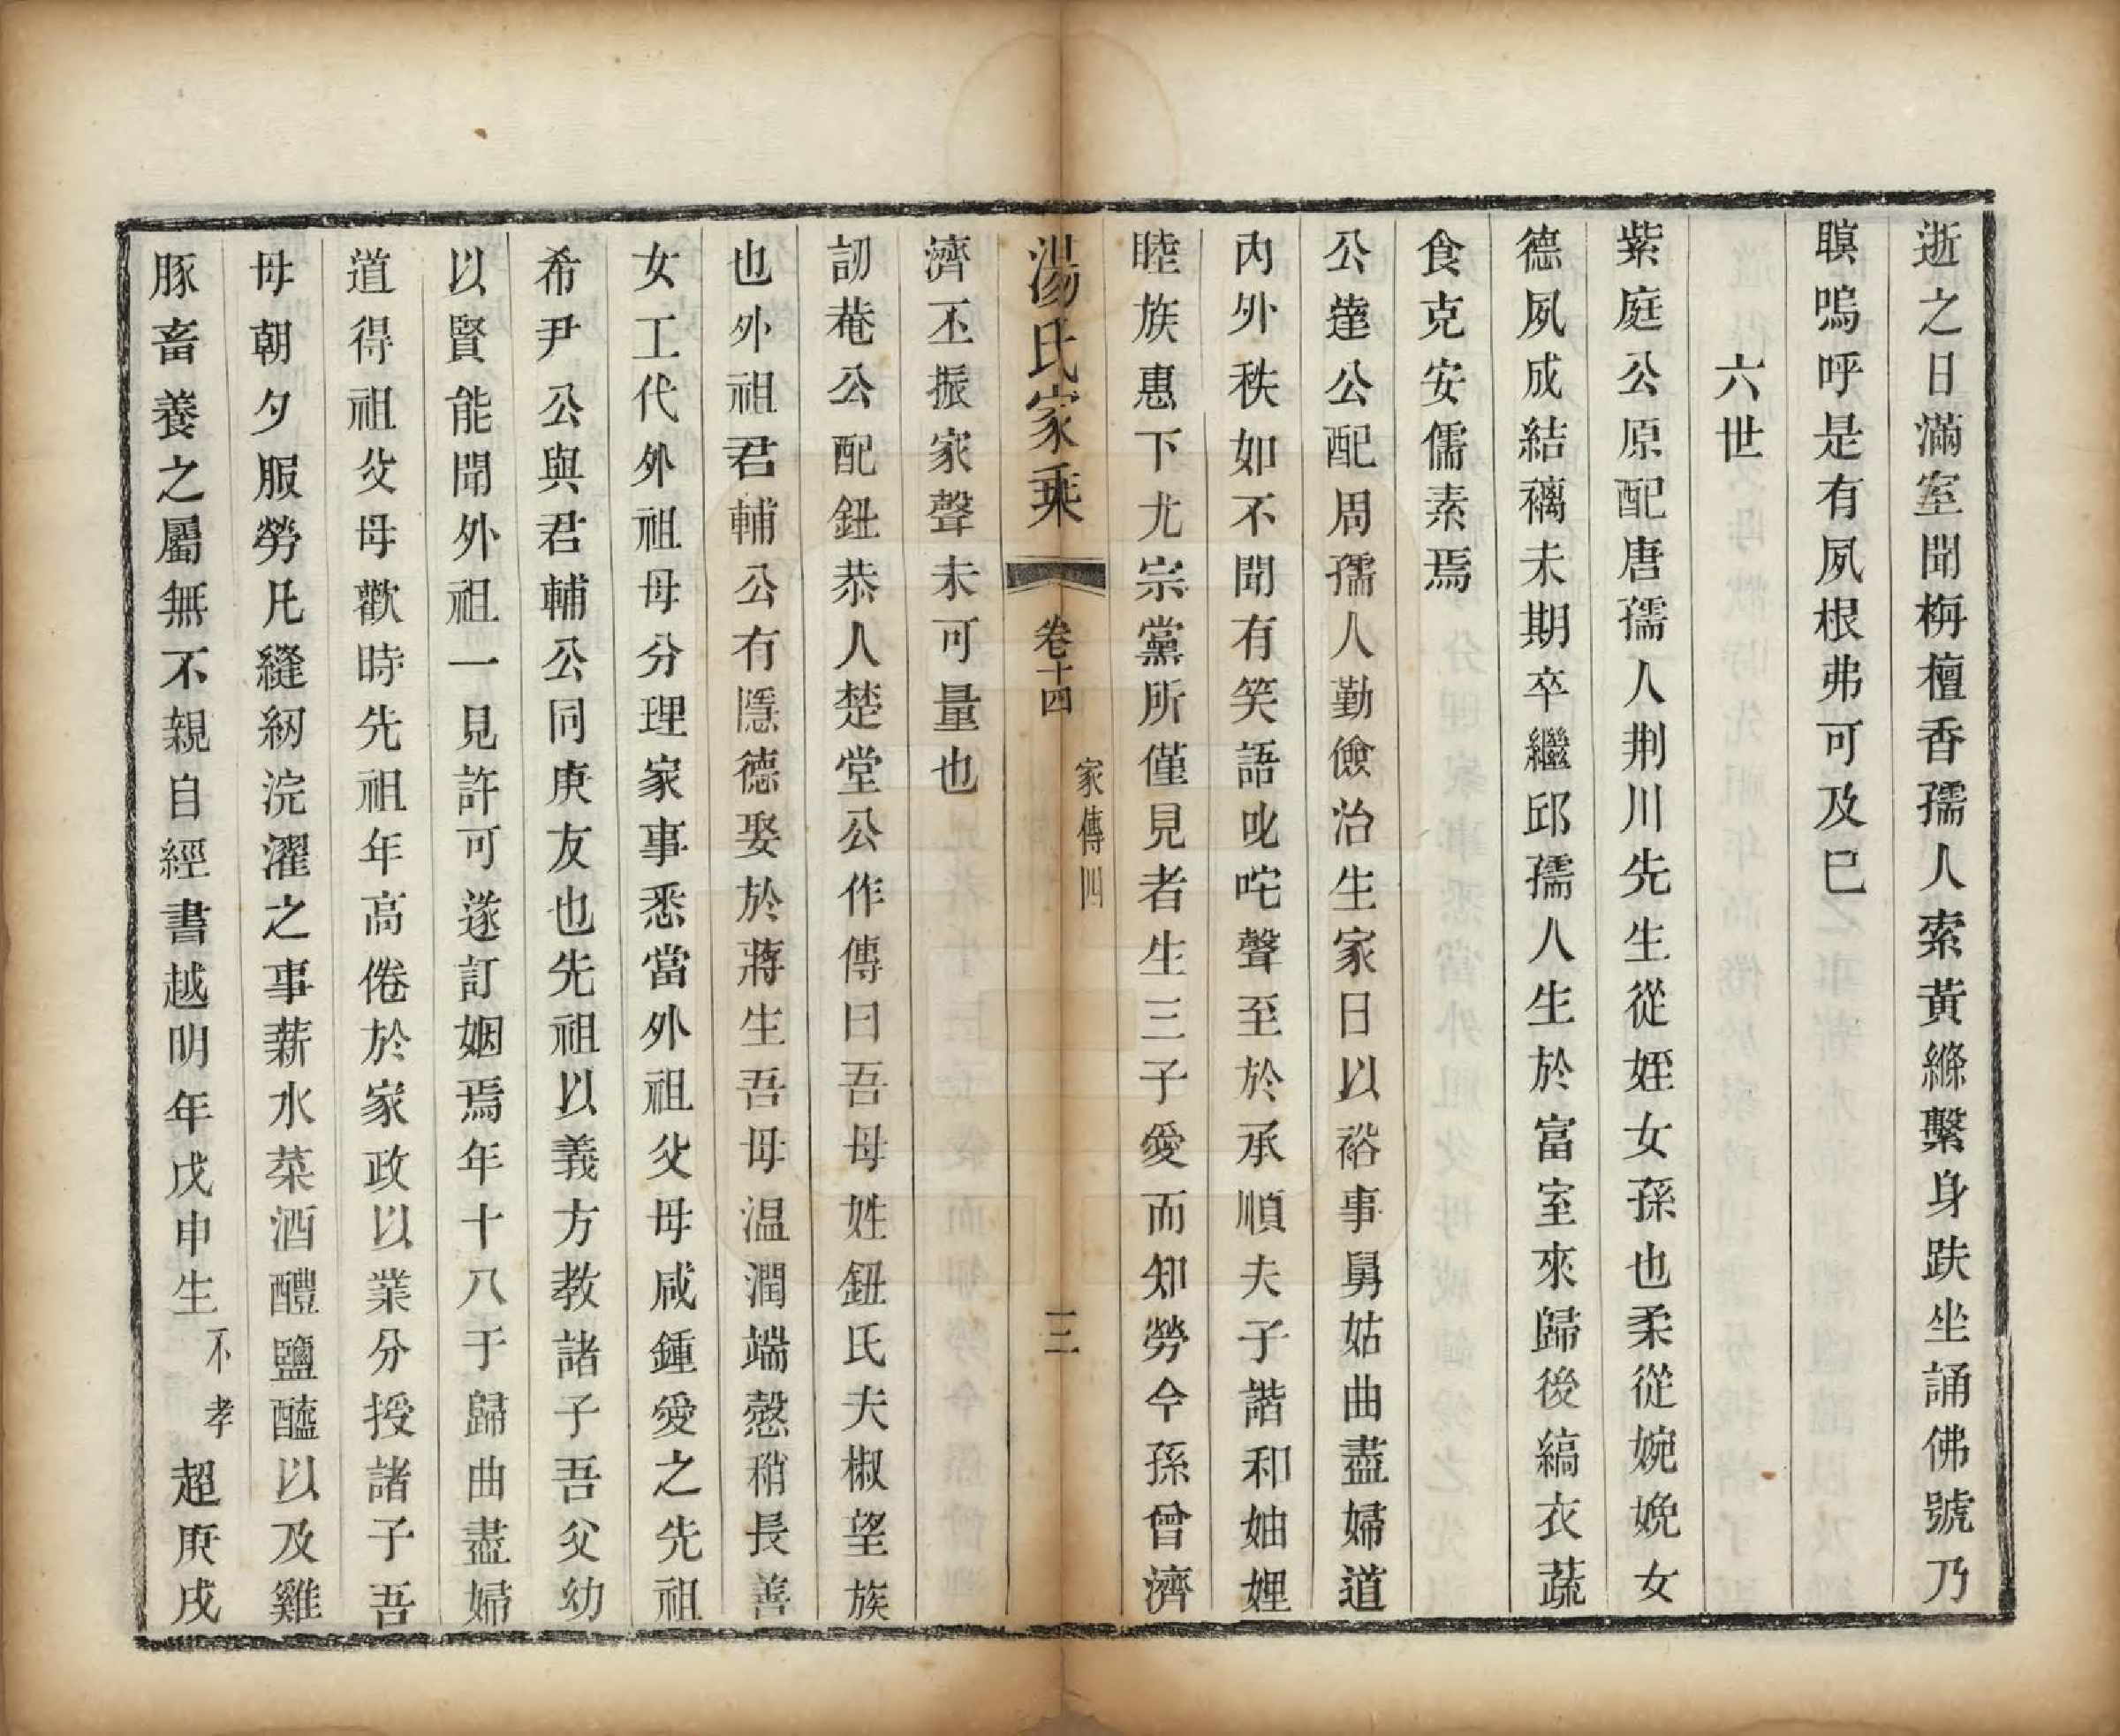 逝之日滿室聞栴檀香孺人索黃縧繫身趺坐誦佛號乃
瞑嗚呼是有夙根弗可及巳
六世
紫庭公原配唐孺人荆川先生從姪女孫也柔從婉娩女
德夙成結褵未期卒繼邱孺人生於富室來歸後縞衣蔬
食克安儒素焉
公達公配周孺人勤儉治生家日以裕事舅姑曲盡婦道
內外秩如不聞有笑語叱咤聲至於承順夫子諧和妯娌
睦族惠下尤宗黨所僅見者生三子愛而知勞今孫曾濟
湯氏家乘 卷十四 家傳四 三
濟丕振家聲未可量也
訒菴公配鈕恭人楚堂公作傳曰吾母姓鈕氏夫椒望族
也外祖君輔公有隱德娶於蔣生吾母温潤端慤稍長善
女工代外祖母分理家事悉當外祖父母咸鍾愛之先祖
希尹公與君輔公同庚友也先祖以義方教諸子吾父幼
以賢能聞外祖一見許可遂訂姻焉年十八于歸曲盡婦
道得祖父母歡時先祖年高倦於家政以業分授諸子吾
母朝夕服勞凡縫紉浣濯之事薪水菜酒醴鹽醢以及雞
豚畜養之屬無不親自經書越明年戊申生不孝超庚戌